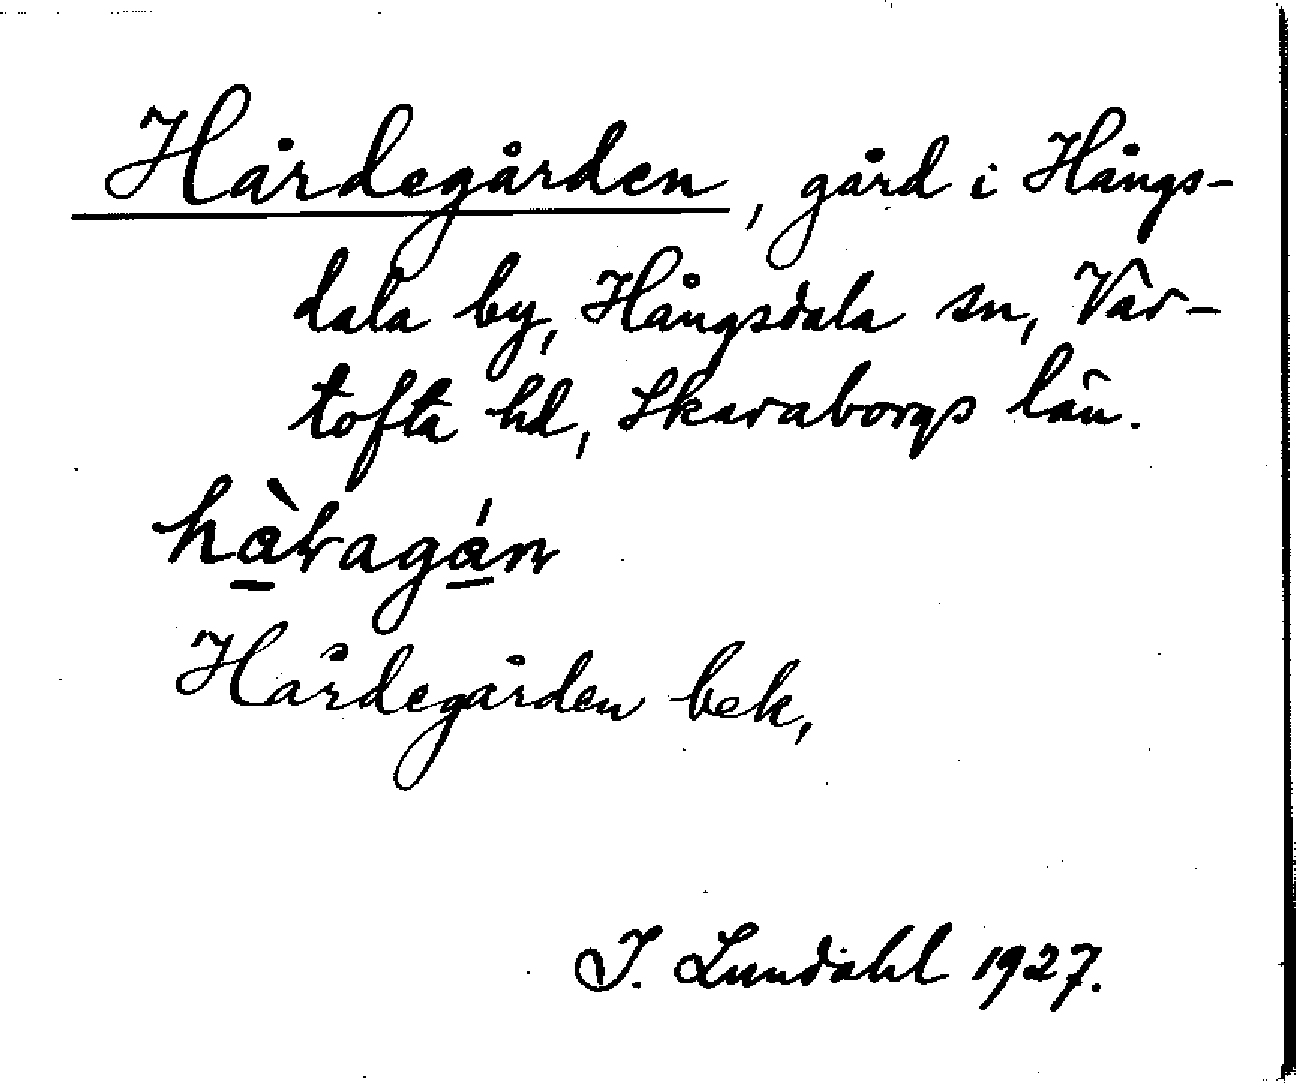 Hårdegården, gård i Hångs-
dala by, Hångsdala sn, Var-
tofta hd, Skaraborgs län.
Hårdegården bek,
I. Lundahl 1927.